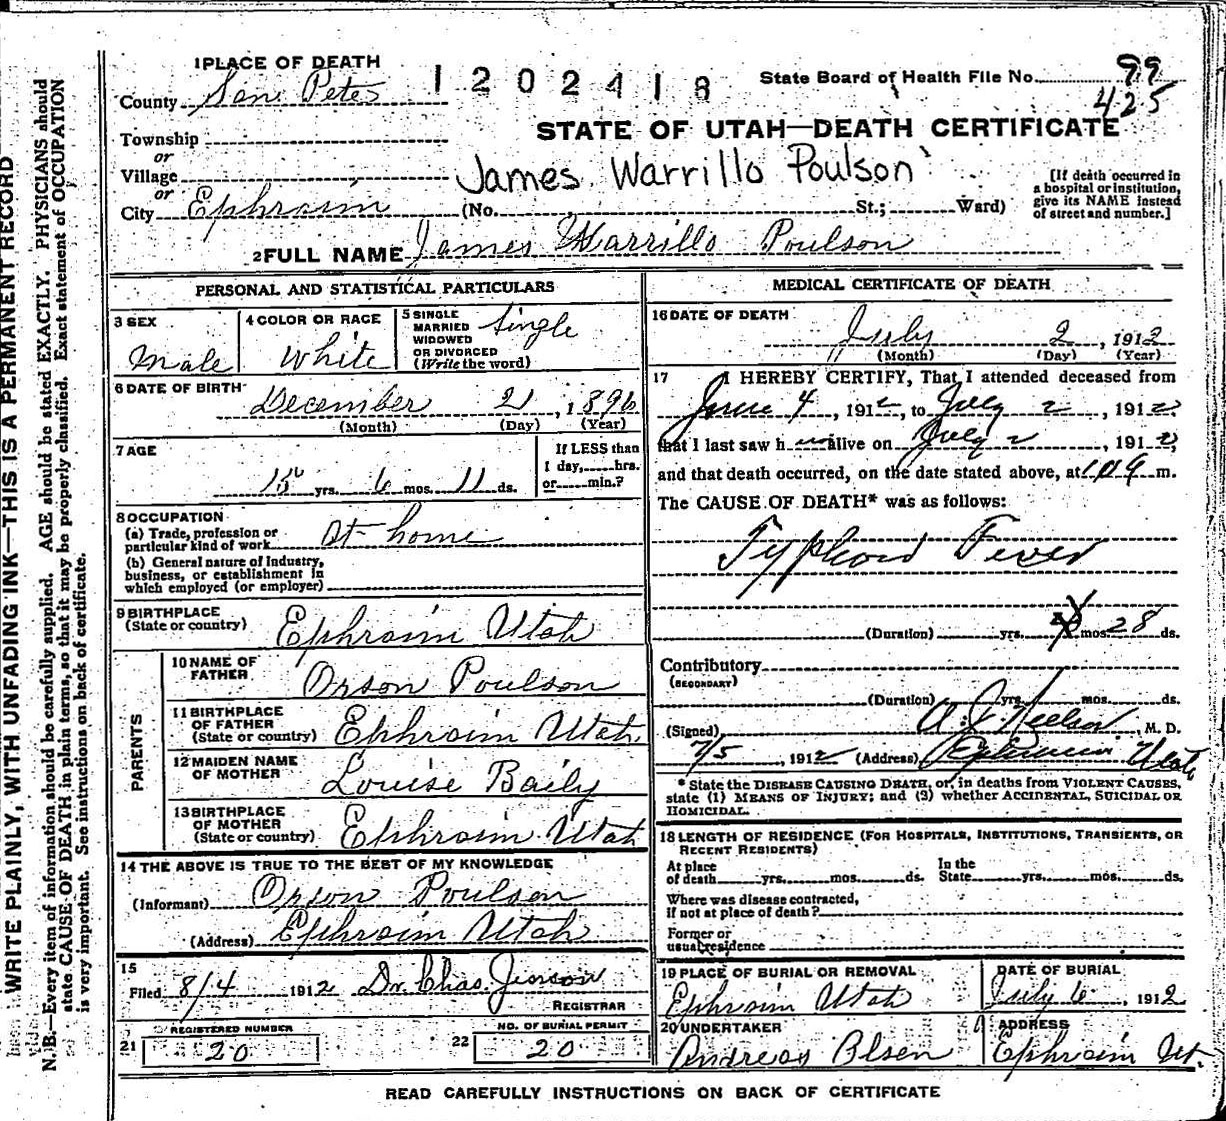 1 PLACE OF DEATH
1202418
State Board of Health File No. 99
425
County San Pete
STATE OF UTAH—DEATH CERTIFICATE
Township
or
Village
or
James Warrillo Poulson
City Ephraim (No. St.; Ward)
[If death occurred in a hospital or institution, give its NAME instead of street and number.]
2 FULL NAME James Warrillo Poulson
PERSONAL AND STATISTICAL PARTICULARS
3 SEX Male
4 COLOR OR RACE White
5 SINGLE MARRIED WIDOWED OR DIVORCED (Write the word) Single
6 DATE OF BIRTH December 21, 1896
(Month) (Day) (Year)
7 AGE 15 yrs. 6 mos. 11 ds.
If LESS than 1 day, hrs. or min.?
8 OCCUPATION
(a) Trade, profession or particular kind of work At home
(b) General nature of Industry, business, or establishment in which employed (or employer)
9 BIRTHPLACE (State or country) Ephraim Utah
PARENTS
10 NAME OF FATHER Orson Poulson
11 BIRTHPLACE OF FATHER (State or country) Ephraim Utah
12 MAIDEN NAME OF MOTHER Louise Baily
13 BIRTHPLACE OF MOTHER (State or country) Ephraim Utah
14 THE ABOVE IS TRUE TO THE BEST OF MY KNOWLEDGE
(Informant) Orson Poulson
(Address) Ephraim Utah
15
Filed 8/4 1912 Dr. Chas. Jenson
REGISTRAR
21 REGISTERED NUMBER 20
22 NO. OF BURIAL PERMIT 20
MEDICAL CERTIFICATE OF DEATH
16 DATE OF DEATH July 2, 1912
(Month) (Day) (Year)
17 I HEREBY CERTIFY, That I attended deceased from
June 4, 1912, to July 2, 1912
that I last saw h im alive on July 2, 1912,
and that death occurred, on the date stated above, at m.
The CAUSE OF DEATH* was as follows:
Typhoid Fever
(Duration) yrs. mos. 28 ds.
Contributory (SECONDARY)
(Duration) yrs. mos. ds.
(Signed) A. J. Nielson, M. D.
7/5, 1912 (Address) Ephraim Utah
* State the DISEASE CAUSING DEATH, or, in deaths from VIOLENT CAUSES,
state (1) MEANS OF INJURY; and (3) whether ACCIDENTAL, SUICIDAL OR
HOMICIDAL.
18 LENGTH OF RESIDENCE (FOR HOSPITALS, INSTITUTIONS, TRANSIENTS, OR
RECENT RESIDENTS)
At place of death yrs. mos. ds. In the State yrs. mos. ds.
Where was disease contracted, if not at place of death?
Former or usual residence
19 PLACE OF BURIAL OR REMOVAL Ephraim Utah
DATE OF BURIAL July 6, 1912
20 UNDERTAKER Andreas Olsen
ADDRESS Ephraim Ut.
READ CAREFULLY INSTRUCTIONS ON BACK OF CERTIFICATE
WRITE PLAINLY, WITH UNFADING INK—THIS IS A PERMANENT RECORD
N. B.—Every item of information should be carefully supplied. AGE should be stated EXACTLY. PHYSICIANS should
state CAUSE OF DEATH in plain terms, so that it may be properly classified. Exact statement of OCCUPATION
is very important. See instructions on back of certificate.